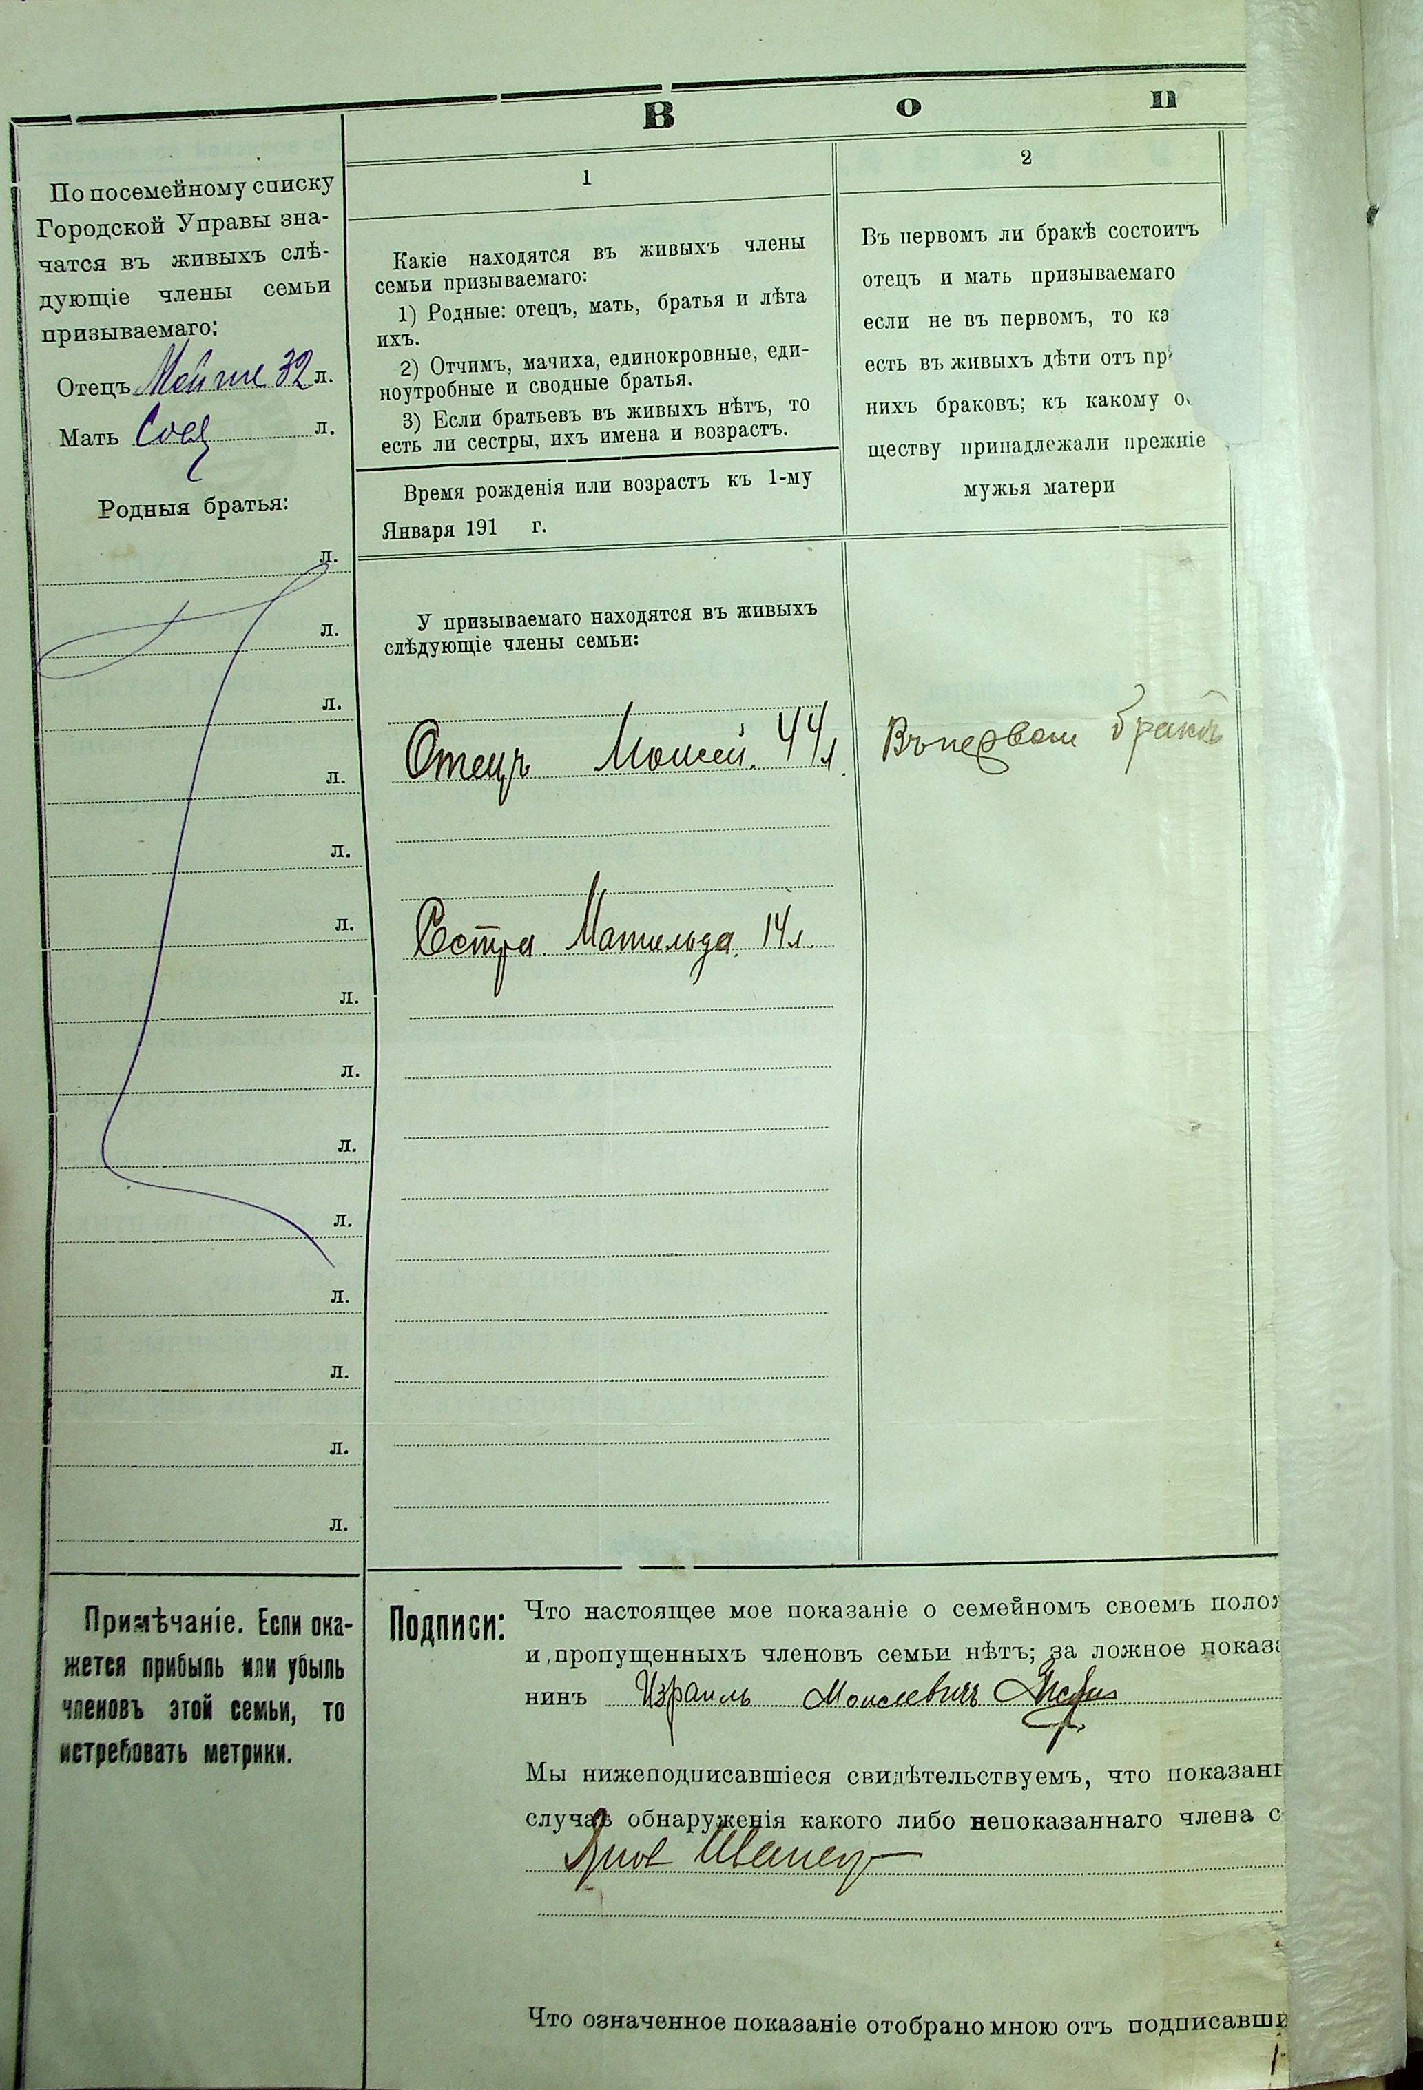 В о п
По посемейному списку
Городской Управы зна-
чатся въ живыхъ слѣ-
дующіе члены семьи
призываемаго:
Отецъ Мойше 32 л.
Мать Соя л.
Родныя братья:
л.
л.
л.
л.
л.
л.
л.
л.
л.
л.
л.
л.
л.
л.
Примѣчаніе. Если ока-
жется прибыль или убыль
членовъ этой семьи, то
истребовать метрики.
1
Какіе находятся въ живыхъ члены
семьи призываемаго:
1) Родные: отецъ, мать, братья и лѣта
ихъ.
2) Отчимъ, мачиха, единокровные, еди-
ноутробные и сводные братья.
3) Если братьевъ въ живыхъ нѣтъ, то
есть ли сестры, ихъ имена и возрастъ.
Время рожденія или возрастъ къ 1-му
Января 191 г.
У призываемаго находятся въ живыхъ
слѣдующіе члены семьи:
Отецъ Моисей. 44 л.
Сестра Матильда. 14 л.
2
Въ первомъ ли бракѣ состоитъ
отецъ и мать призываемаго
если не въ первомъ, то ка
есть въ живыхъ дѣти отъ пр
нихъ браковъ; къ какому о
ществу принадлежали прежніе
мужья матери
Въ первом бракѣ
Подписи:
Что настоящее мое показаніе о семейномъ своемъ полож
и пропущенныхъ членовъ семьи нѣтъ; за ложное показа
нинъ Израиль Моисеевичъ
Мы нижеподписавшіеся свидѣтельствуемъ, что показан
случаѣ обнаруженія какого либо непоказаннаго члена с
Что означенное показаніе отобрано мною отъ подписавши